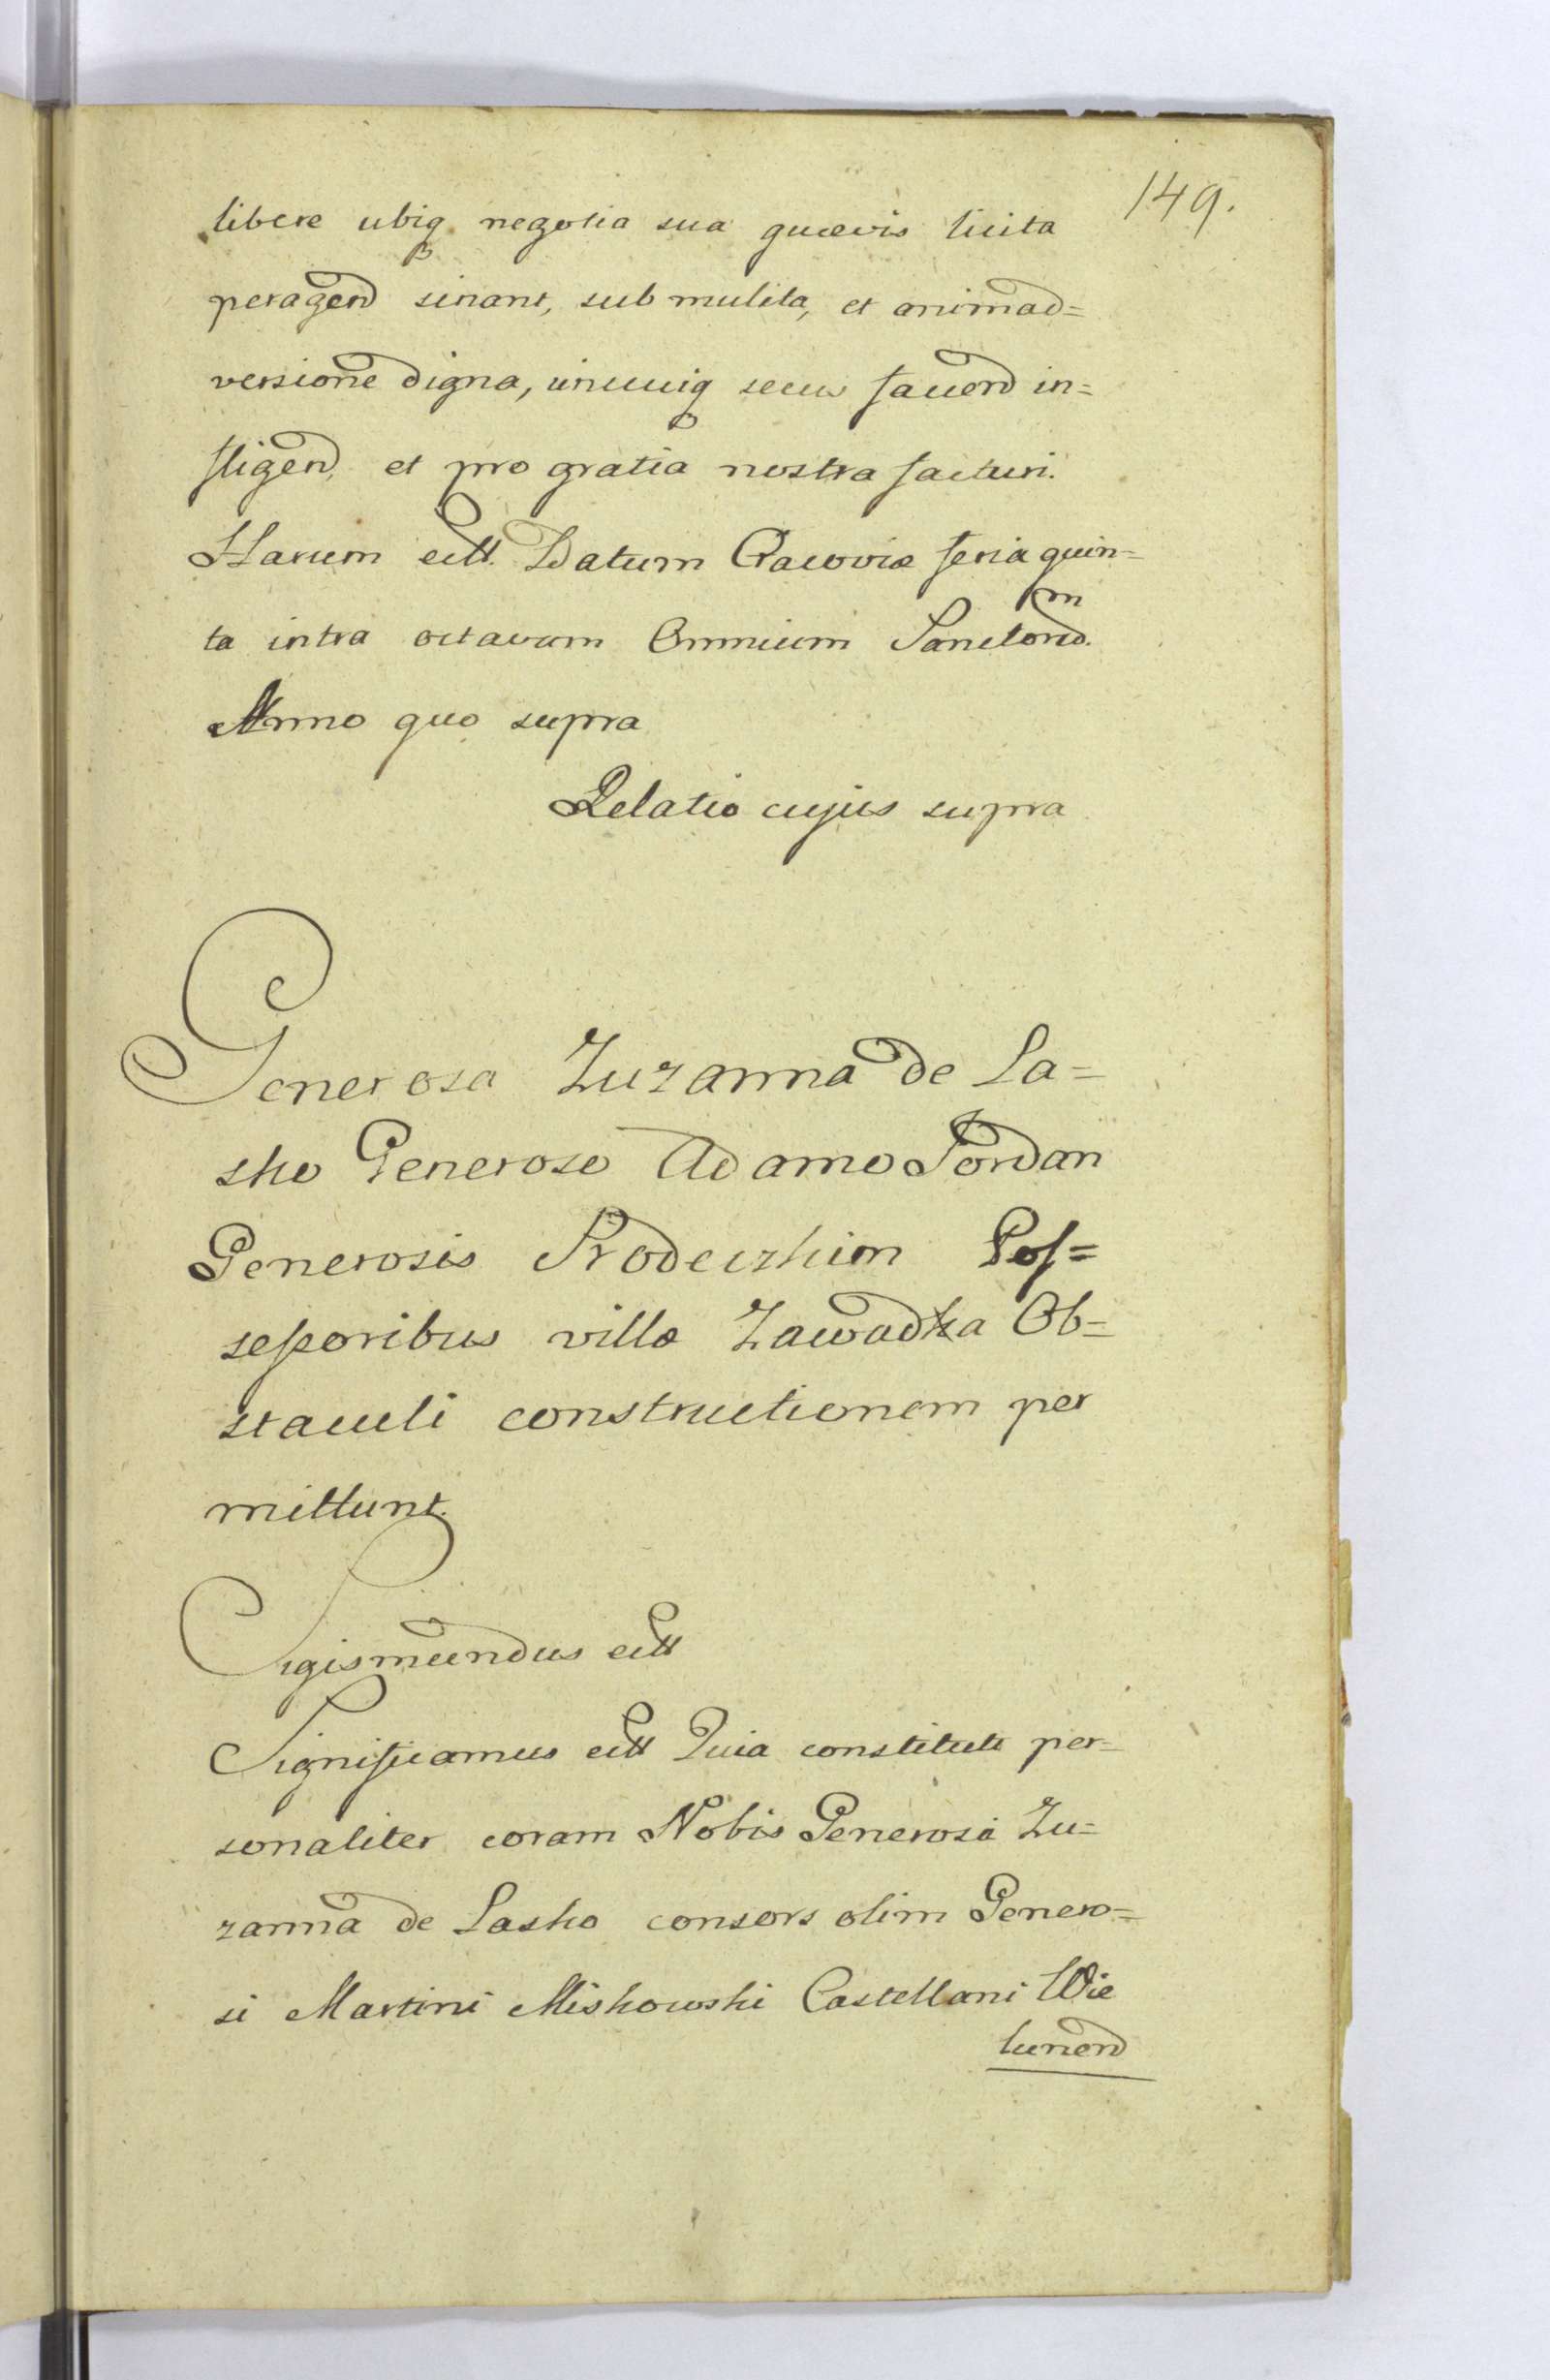 149.
libere ubiq negotia sua quævis licita
peragend sinant, sub mulita, et animad=
versione digna, unicuiq secus facend in=
fligend, et pro gratia nostra facturi.
Harum ett. Datum Cracoviæ feria quin=
ta intra octavam Omnium Sanctorum
Anno quo supra
Relatio cujus supra
Generosa Zuzanna de La=
sko Generoso Adamo Jordan
Generosis Prodeczkim Pos=
sessoribus villæ Zawadka Ob=
staculi constructionem per
mittunt.
Sigismundus ett
Significamus ett Quia constituti per=
sonaliter coram Nobis Generosa Zu=
zanna de Lasko consors olim Genero=
si Martini Miskowski Castellani Wie
lunend